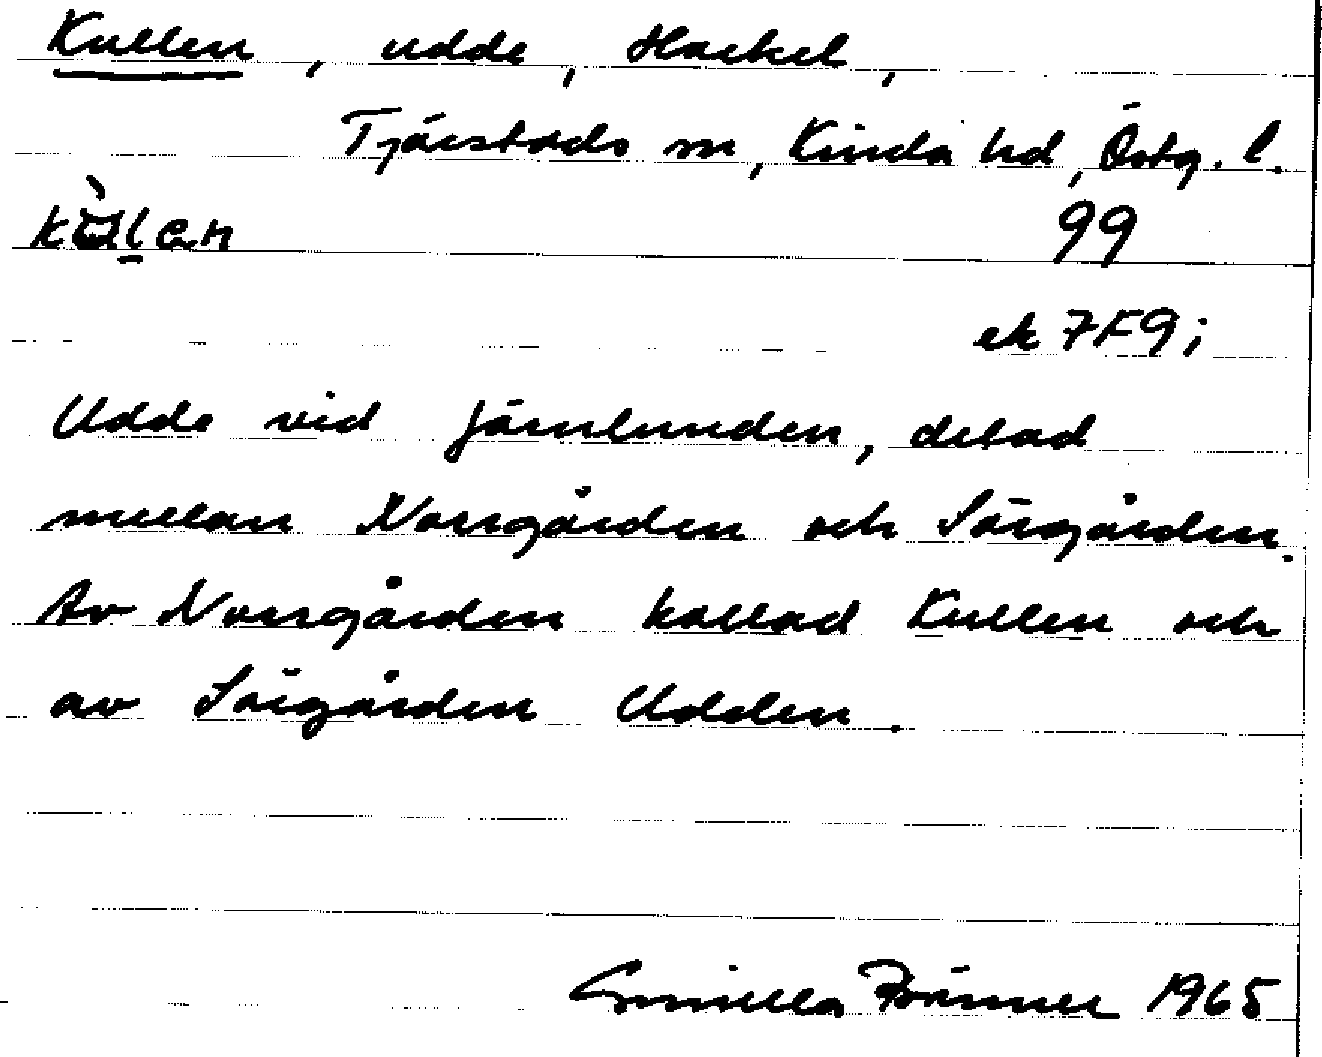 Kullen, udde, Hackel,
Tjärstads sn, Kinda hd, Östg. l.
99
ek 7F9i
Udde vid Järnlunden, delad
mellan Norrgården och Sörgården.
Av Norrgården kallad Kullen och
av Sörgården Udden.
Gunilla 1965